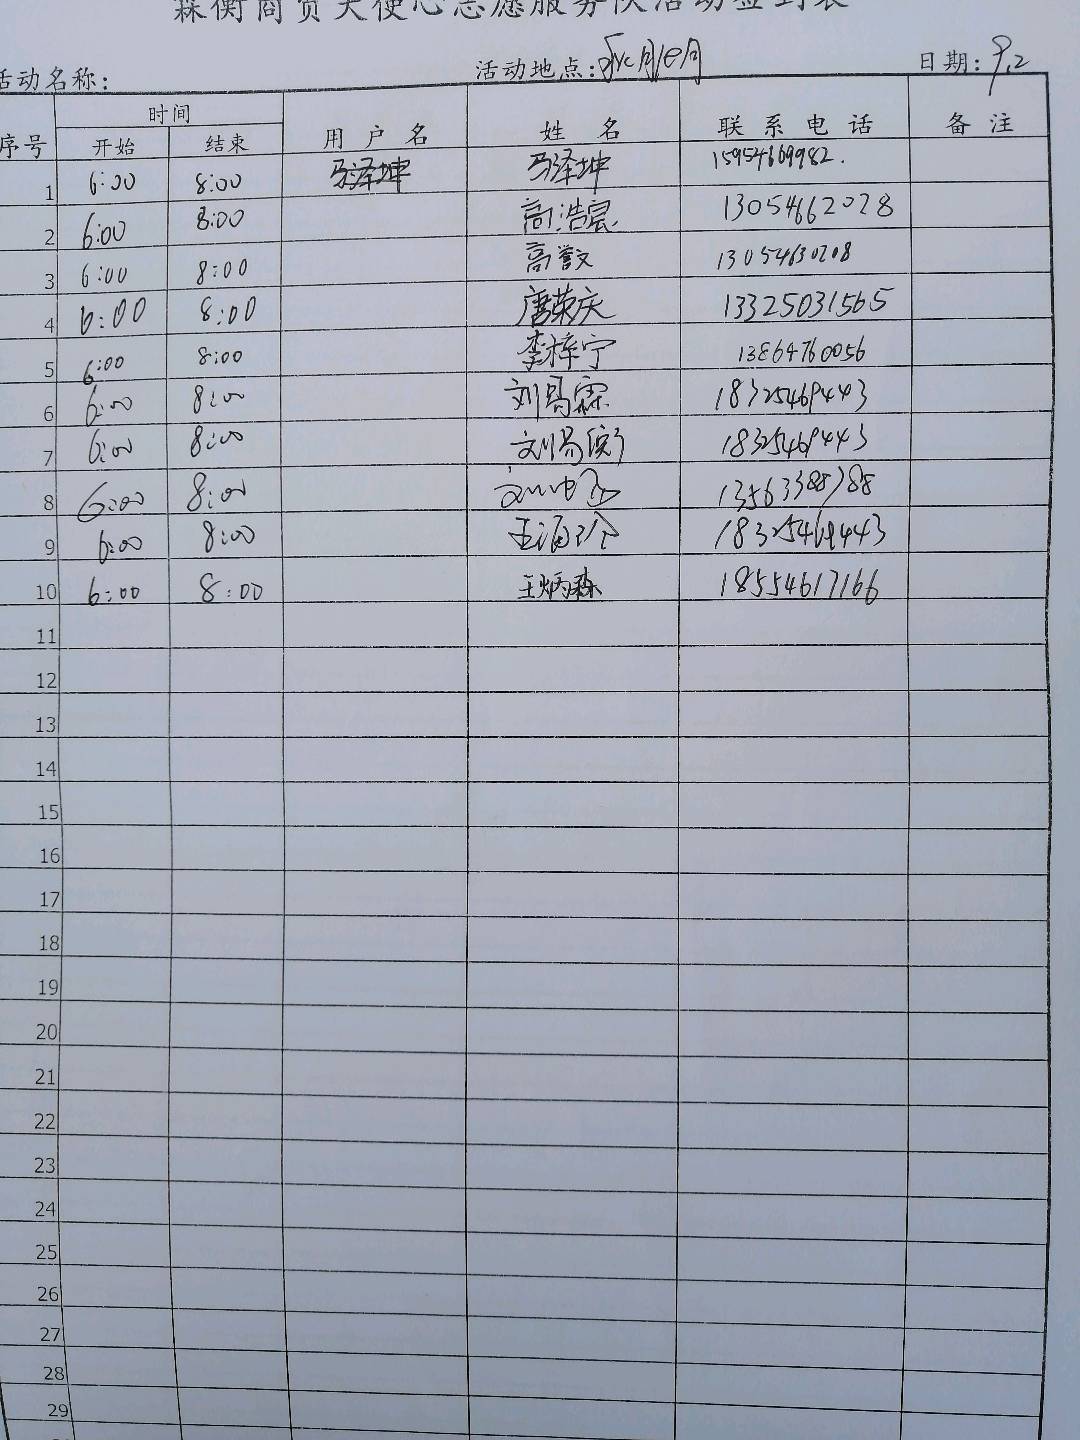 森衡商贸天使心志愿服务队活动签到表
活动名称: 活动地点: 日期: 9.2
序号 时间 用户名 姓名 联系电话 备注
开始 结束
1 6:00 8:00 马泽坤 马泽坤 15954669982.
2 6:00 8:00 高浩晨 13054662028
3 6:00 8:00 高誉文 13054630208
4 6:00 8:00 唐荣庆 13325031565
5 6:00 8:00 李梓宁 13864760056
6 6:00 8:00 刘易霖 18325469443
7 6:00 8:00 刘易 18325469443
8 6:00 8:00 13563388788
9 6:00 8:00 18325469443
10 6:00 8:00 王炳森 18554617166
11
12
13
14
15
16
17
18
19
20
21
22
23
24
25
26
27
28
29